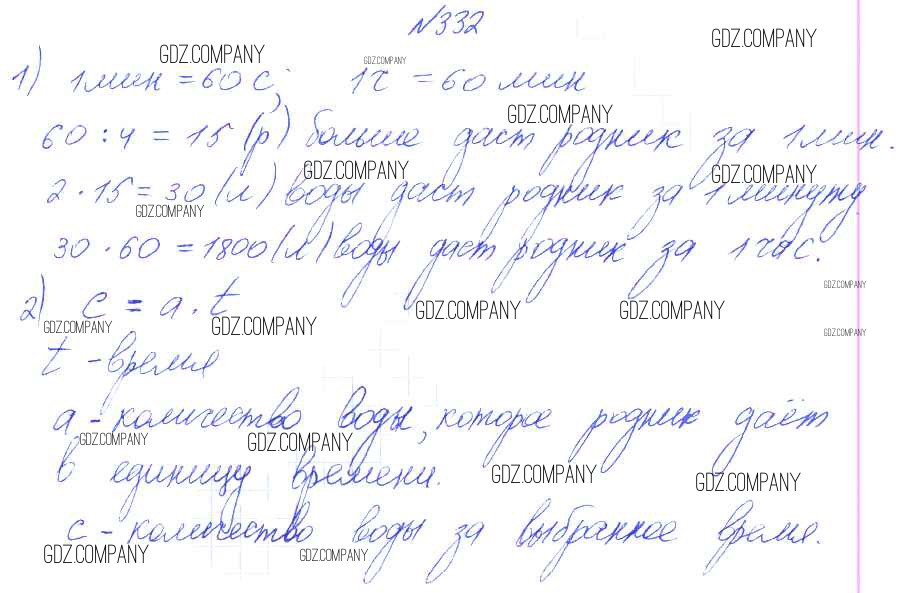 №332
GDZ.COMPANY GDZ.COMPANY GDZ.COMPANY
1) 1 мин = 60 с; 1 ч = 60 мин
GDZ.COMPANY
60 : 4 = 15 (р) больше даст родник за 1 мин.
GDZ.COMPANY GDZ.COMPANY
2 · 15 = 30 (л) воды даст родник за 1 минуту.
GDZ.COMPANY
30 · 60 = 1800 (л) воды даст родник за 1 час.
GDZ.COMPANY
2) c = a · t
GDZ.COMPANY GDZ.COMPANY GDZ.COMPANY GDZ.COMPANY GDZ.COMPANY
t - время
a - количество воды, которое родник даёт
GDZ.COMPANY GDZ.COMPANY
в единицу времени.
GDZ.COMPANY GDZ.COMPANY
c - количество воды за выбранное время.
GDZ.COMPANY GDZ.COMPANY